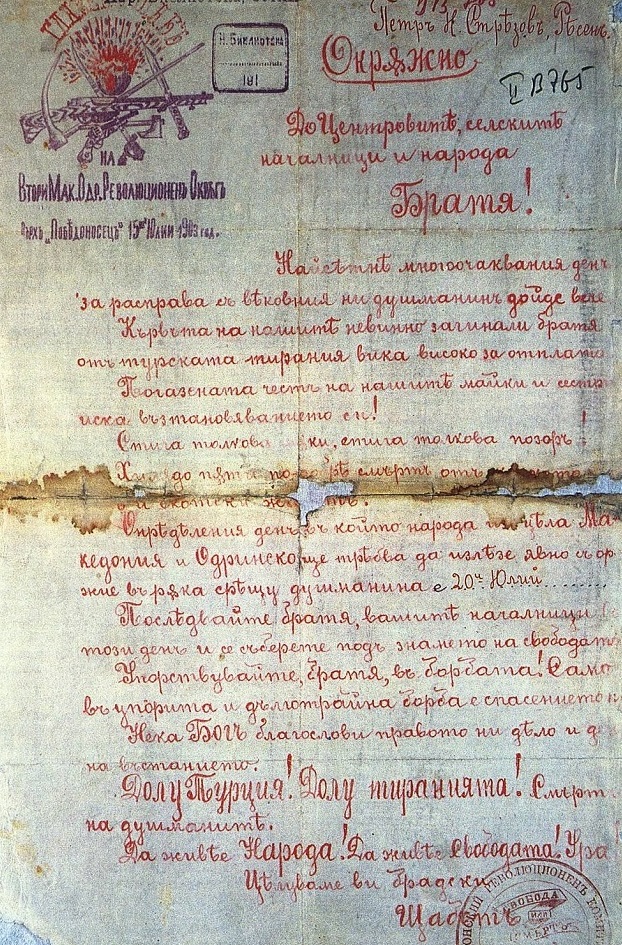 Н. Библиотека
181
Петръ Н. Стрѣзовъ, Рѣсенъ
Окрѫжно
II В 765
До Центровитѣ, селскитѣ
началници и народа
Братя!
НА
Втори Мак. Одр. Революционенъ Окръгъ
Върхъ „Побѣдоносецъ“ 15й Юлий 1903 год.
Найсѣтнѣ многоочаквания день
за расправа съ вѣковния ни душманинъ дойде вече
Кървьта на нашитѣ невинно загинали братя
отъ турската тирания вика високо за отплата
Погазената честь на нашитѣ майки и сестри
иска възтановяванието си!
Стига толкова, стига толкова позоръ!
до смърть отъ
Опрѣдѣления день въ който народа изъ цѣла Ма-
кедония и Одринско ще трѣбва да излѣзе явно съ орѫ
жие въ рѫка срѣщу душманина е 20й Юлий........
Послѣдвайте братя, вашитѣ началници въ
този день и се съберете подъ знамето на свободата
Упорствувайте, братя, въ борбата! Само
въ упорита и дълготрайна борба е спасението
Нека БОГЪ благослови правото ни дѣло и
на въстанието.
Долу Турция! Долу тиранията! Смърть
на душманитѣ.
Да живѣе Народа! Да живѣе Свободата! Ура
Цѣлуваме ви братски
Щабътъ
РЕВОЛЮЦИОНЕНЪ
СВОБОДА
ИЛИ
СМЕРТЬ